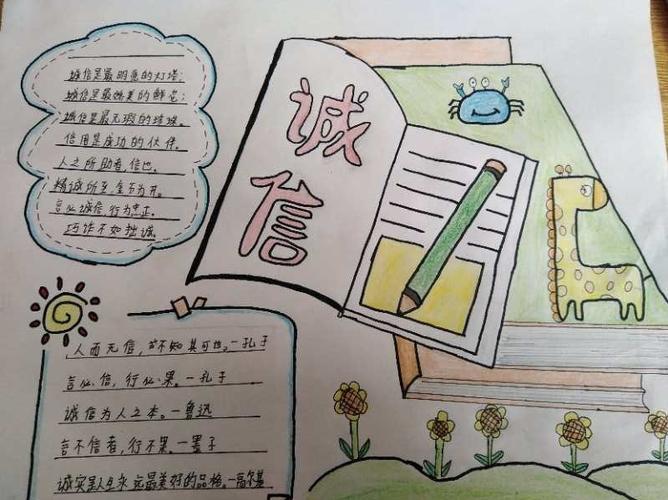 诚信是最明亮的灯塔;
诚信是最娇美的鲜花;
诚信是最无瑕的珪璋。
信用是成功的伙伴。
人之所助者,信也。
精诚所至金石为开。
言必诚信,行为忠正。
巧诈不如拙诚
诚信
人而无信,不知其可也。—孔子
言必信,行必果。—孔子
诚信为人之本。—鲁迅
言不信者,行不果。—墨子
诚实是人生永远最美好的品格。—高尔基